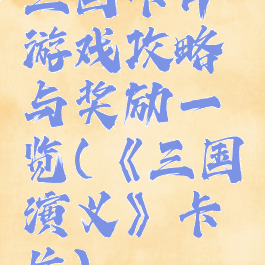 游戏攻略
与奖励一
览(《三国
演义》卡